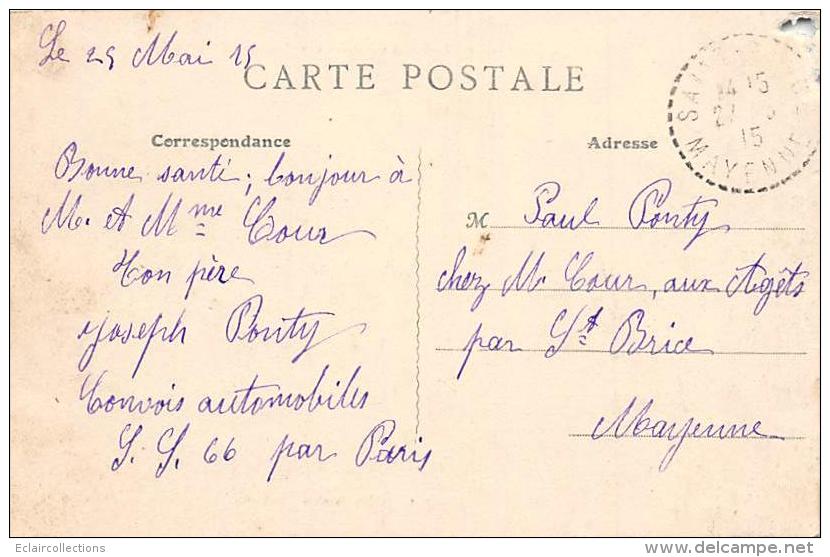 Le 25 Mai 15
CARTE POSTALE
Correspondance
Adresse
Bonne santé; bonjour à
M. et Mme Cour
Ton père
Joseph Ponty
Convois automobiles
S. S. 66 par Paris
M Paul Ponty
chez M. Cour, aux Agêts
par St Brice
Mayenne
14 15
15
MAYENNE
Eclaircollections
www.delcampe.net